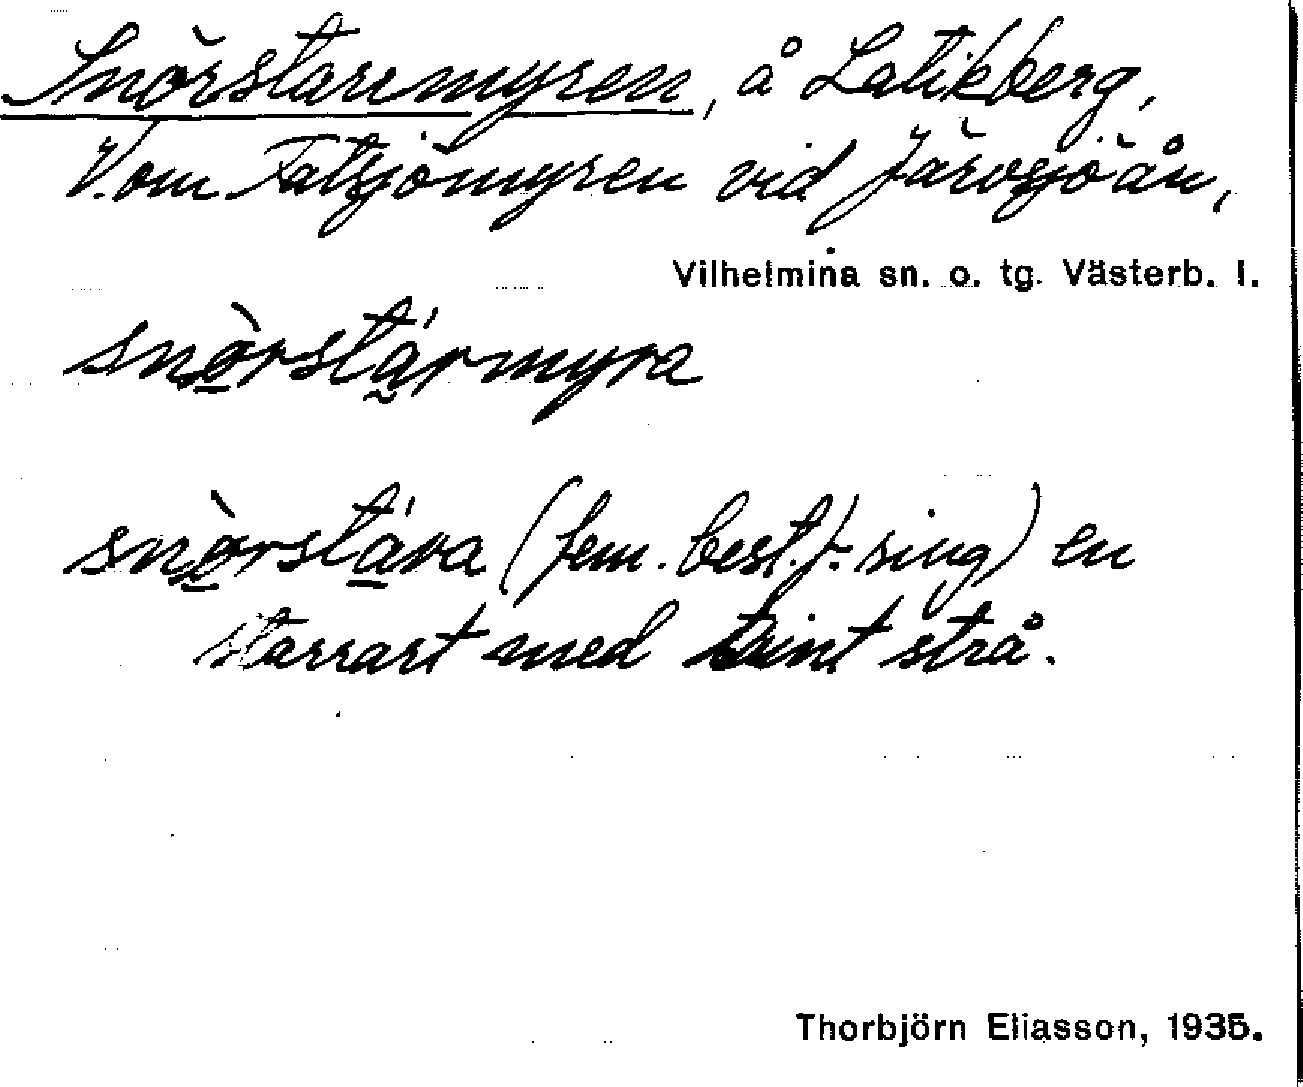 Snörstarrmyren, å Latikberg,
V.om Fatsjömyren vid Järvsjöån,
Vilhelmina sn. o. tg. Västerb. l.
snò̱rstá̰rmyra
snò̱rstá̱ra (fem. best. f. sing) en
starrart med trint strå.
Thorbjörn Eliasson, 1935.